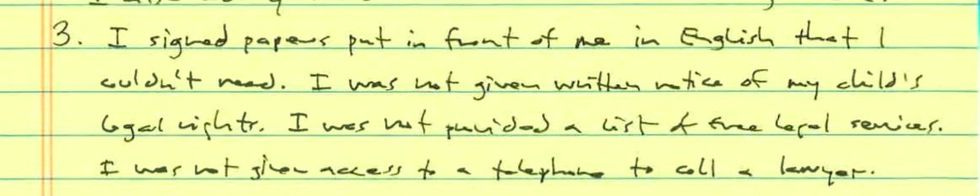 3. I signed papers put in front of me in English that I
couldn't read. I was not given written notice of my child's
legal rights. I was not provided a list of free legal services.
I was not given access to a telephone to call a lawyer.